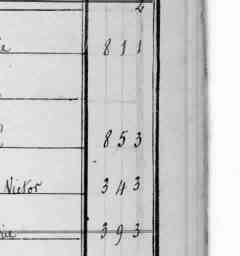 2
811
853
Victor 343
393